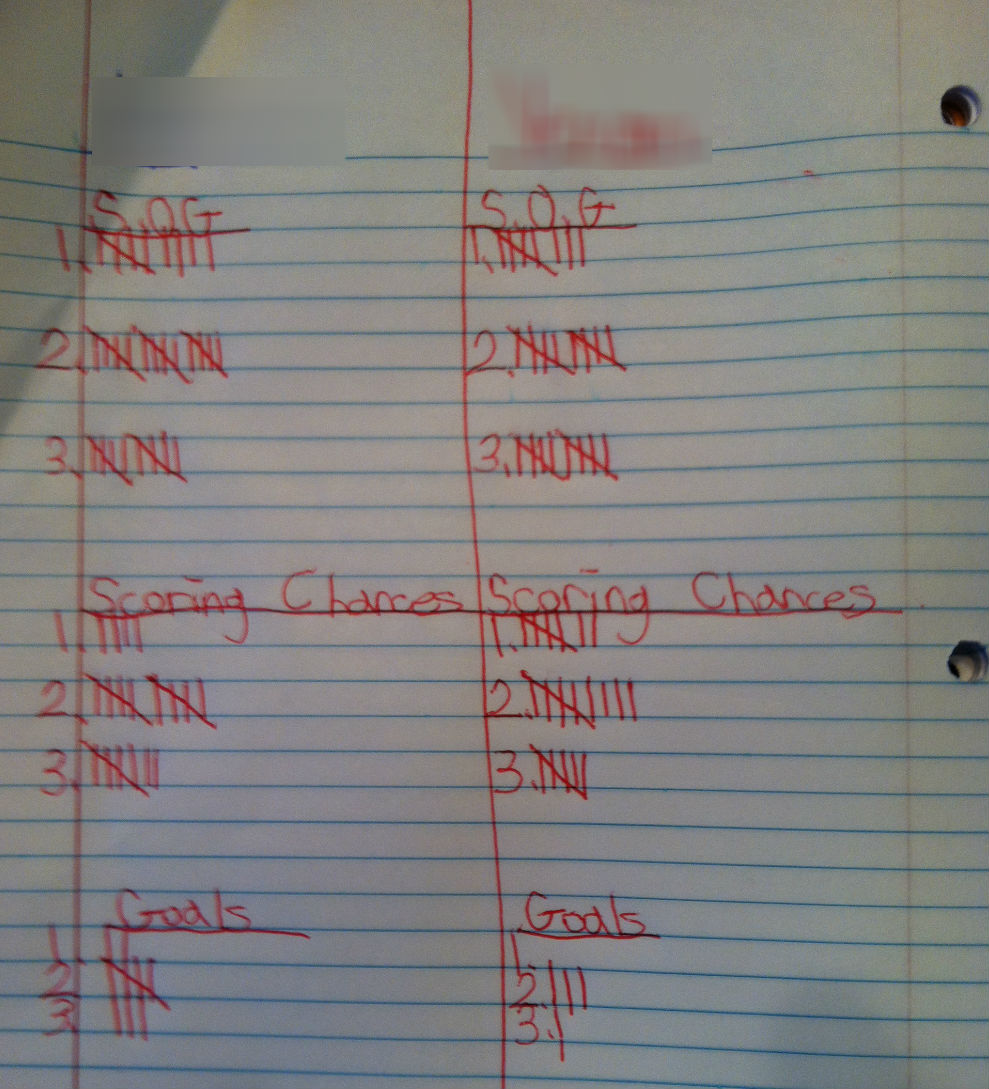 S.O.G
1.
2.
3.
Scoring Chances
1.
2.
3.
Goals
1.
2
3.
S.O.G
1.
2.
3.
Scoring Chances
1.
2.
3.
Goals
1.
2.
3.